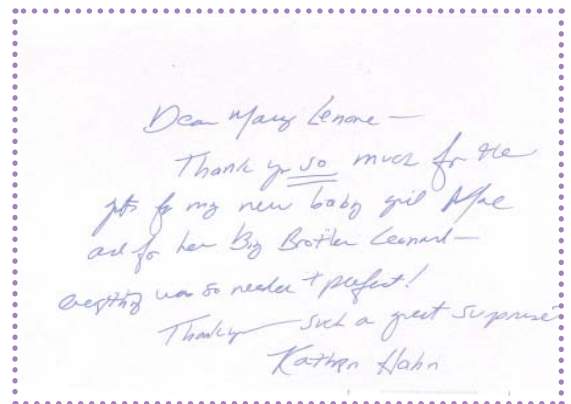 Dear Mary Lenore —
Thank you so much for the
gifts for my new baby girl Mae
and for her Big Brother Leonard —
everything was so needed + perfect!
Thank you — such a great surprise
Kathryn Hahn